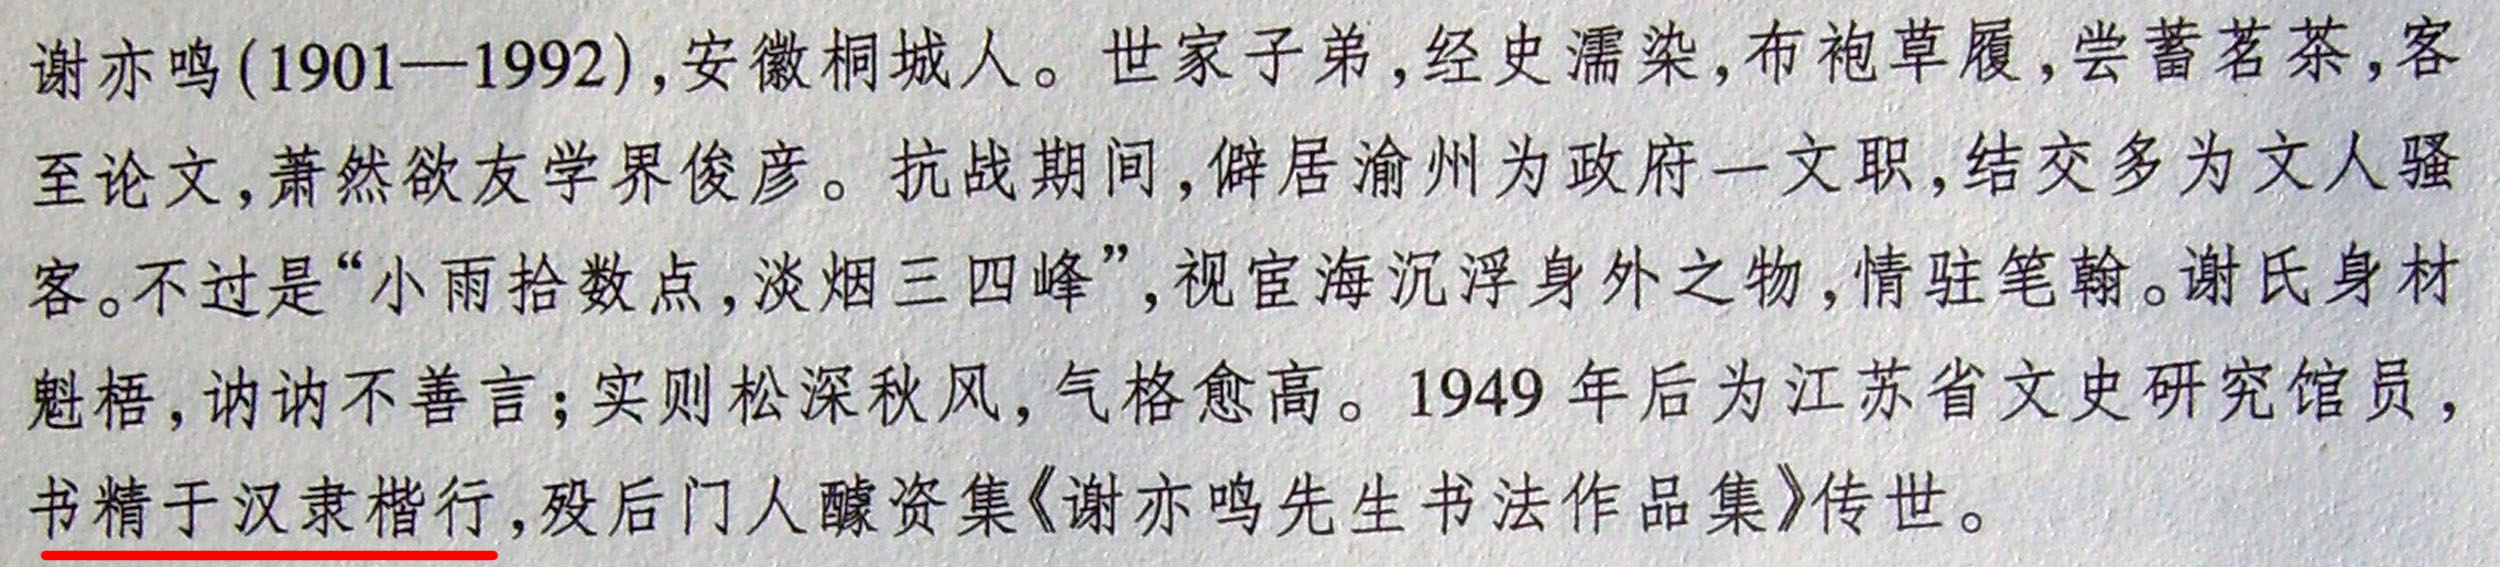 谢亦鸣(1901—1992),安徽桐城人。世家子弟,经史濡染,布袍草履,尝蓄茗茶,客
至论文,萧然欲友学界俊彦。抗战期间,僻居渝州为政府一文职,结交多为文人骚
客。不过是“小雨拾数点,淡烟三四峰”,视宦海沉浮身外之物,情驻笔翰。谢氏身材
魁梧,讷讷不善言;实则松深秋风,气格愈高。1949年后为江苏省文史研究馆员,
书精于汉隶楷行,殁后门人醵资集《谢亦鸣先生书法作品集》传世。